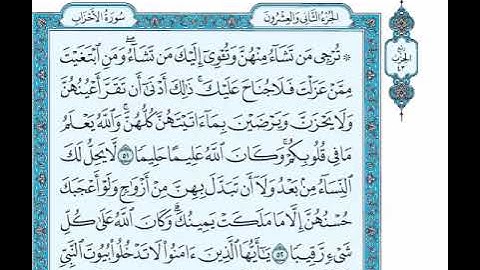 سُورَةُ الأَحْزَابِ
الجُزْءُ الثَّانِي وَالْعِشْرُونَ
رُبْع
الحِزْب
٤٣
۞ تُرْجِي مَن تَشَآءُ مِنْهُنَّ وَتُـْٔوِىٓ إِلَيْكَ مَن تَشَآءُ ۖ وَمَنِ ٱبْتَغَيْتَ
مِمَّنْ عَزَلْتَ فَلَا جُنَاحَ عَلَيْكَ ۚ ذَٰلِكَ أَدْنَىٰٓ أَن تَقَرَّ أَعْيُنُهُنَّ
وَلَا يَحْزَنَّ وَيَرْضَيْنَ بِمَآ ءَاتَيْتَهُنَّ كُلُّهُنَّ ۚ وَٱللَّهُ يَعْلَمُ
مَا فِى قُلُوبِكُمْ ۚ وَكَانَ ٱللَّهُ عَلِيمًا حَلِيمًا ٥١ لَّا يَحِلُّ لَكَ
ٱلنِّسَآءُ مِنۢ بَعْدُ وَلَآ أَن تَبَدَّلَ بِهِنَّ مِنْ أَزْوَٰجٍ وَلَوْ أَعْجَبَكَ
حُسْنُهُنَّ إِلَّا مَا مَلَكَتْ يَمِينُكَ ۗ وَكَانَ ٱللَّهُ عَلَىٰ كُلِّ
شَىْءٍ رَّقِيبًا ٥٢ يَـٰٓأَيُّهَا ٱلَّذِينَ ءَامَنُوا۟ لَا تَدْخُلُوا۟ بُيُوتَ ٱلنَّبِىِّ